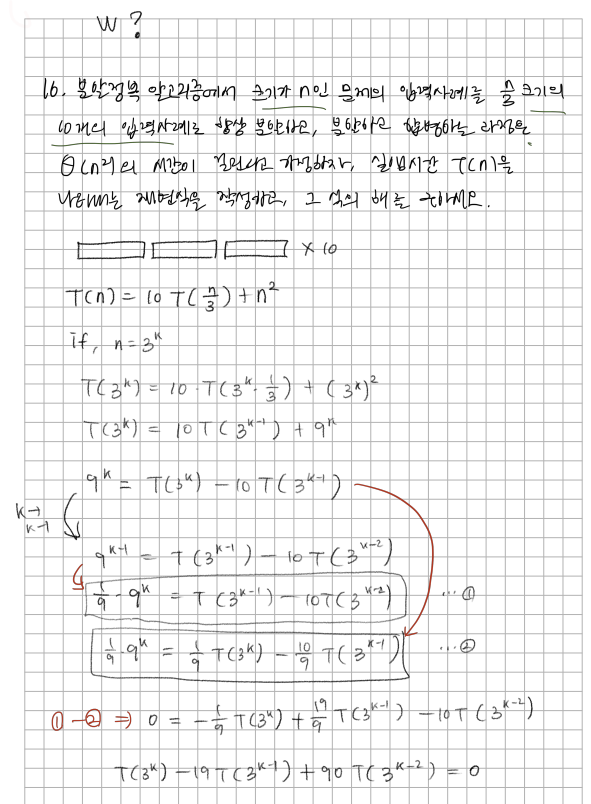 W ?
16. 분할정복 알고리즘에서 크기가 n인 문제의 입력사례를 n/3 크기의
10개의 입력사례로 항상 분할하고, 분할하고 합병하는 과정은
Θ(n²)의 시간이 걸린다고 가정하자, 실행시간 T(n)을
나타내는 재현식을 작성하고, 그 식의 해를 구하세요.
× 10
T(n) = 10 T(n/3) + n²
if, n = 3^k
T(3^k) = 10 · T(3^k · 1/3) + (3^k)²
T(3^k) = 10 T(3^(k-1)) + 9^k
9^k = T(3^k) - 10 T(3^(k-1))
k→
k-1
9^(k-1) = T(3^(k-1)) - 10 T(3^(k-2))
1/9 · 9^k = T(3^(k-1)) - 10T(3^(k-2)) ...①
1/9 · 9^k = 1/9 T(3^k) - 10/9 T(3^(k-1)) ...②
①-② ⇒ 0 = -1/9 T(3^k) + 19/9 T(3^(k-1)) - 10T(3^(k-2))
T(3^k) - 19T(3^(k-1)) + 90T(3^(k-2)) = 0